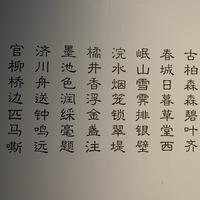 古柏森森碧叶齐
春城日暮草堂西
岷山雪霁排银壁
浣水烟笼锁翠堤
橘井香浮金盏注
墨池色润綵毫题
济川舟送钟鸣远
官柳桥边匹马嘶